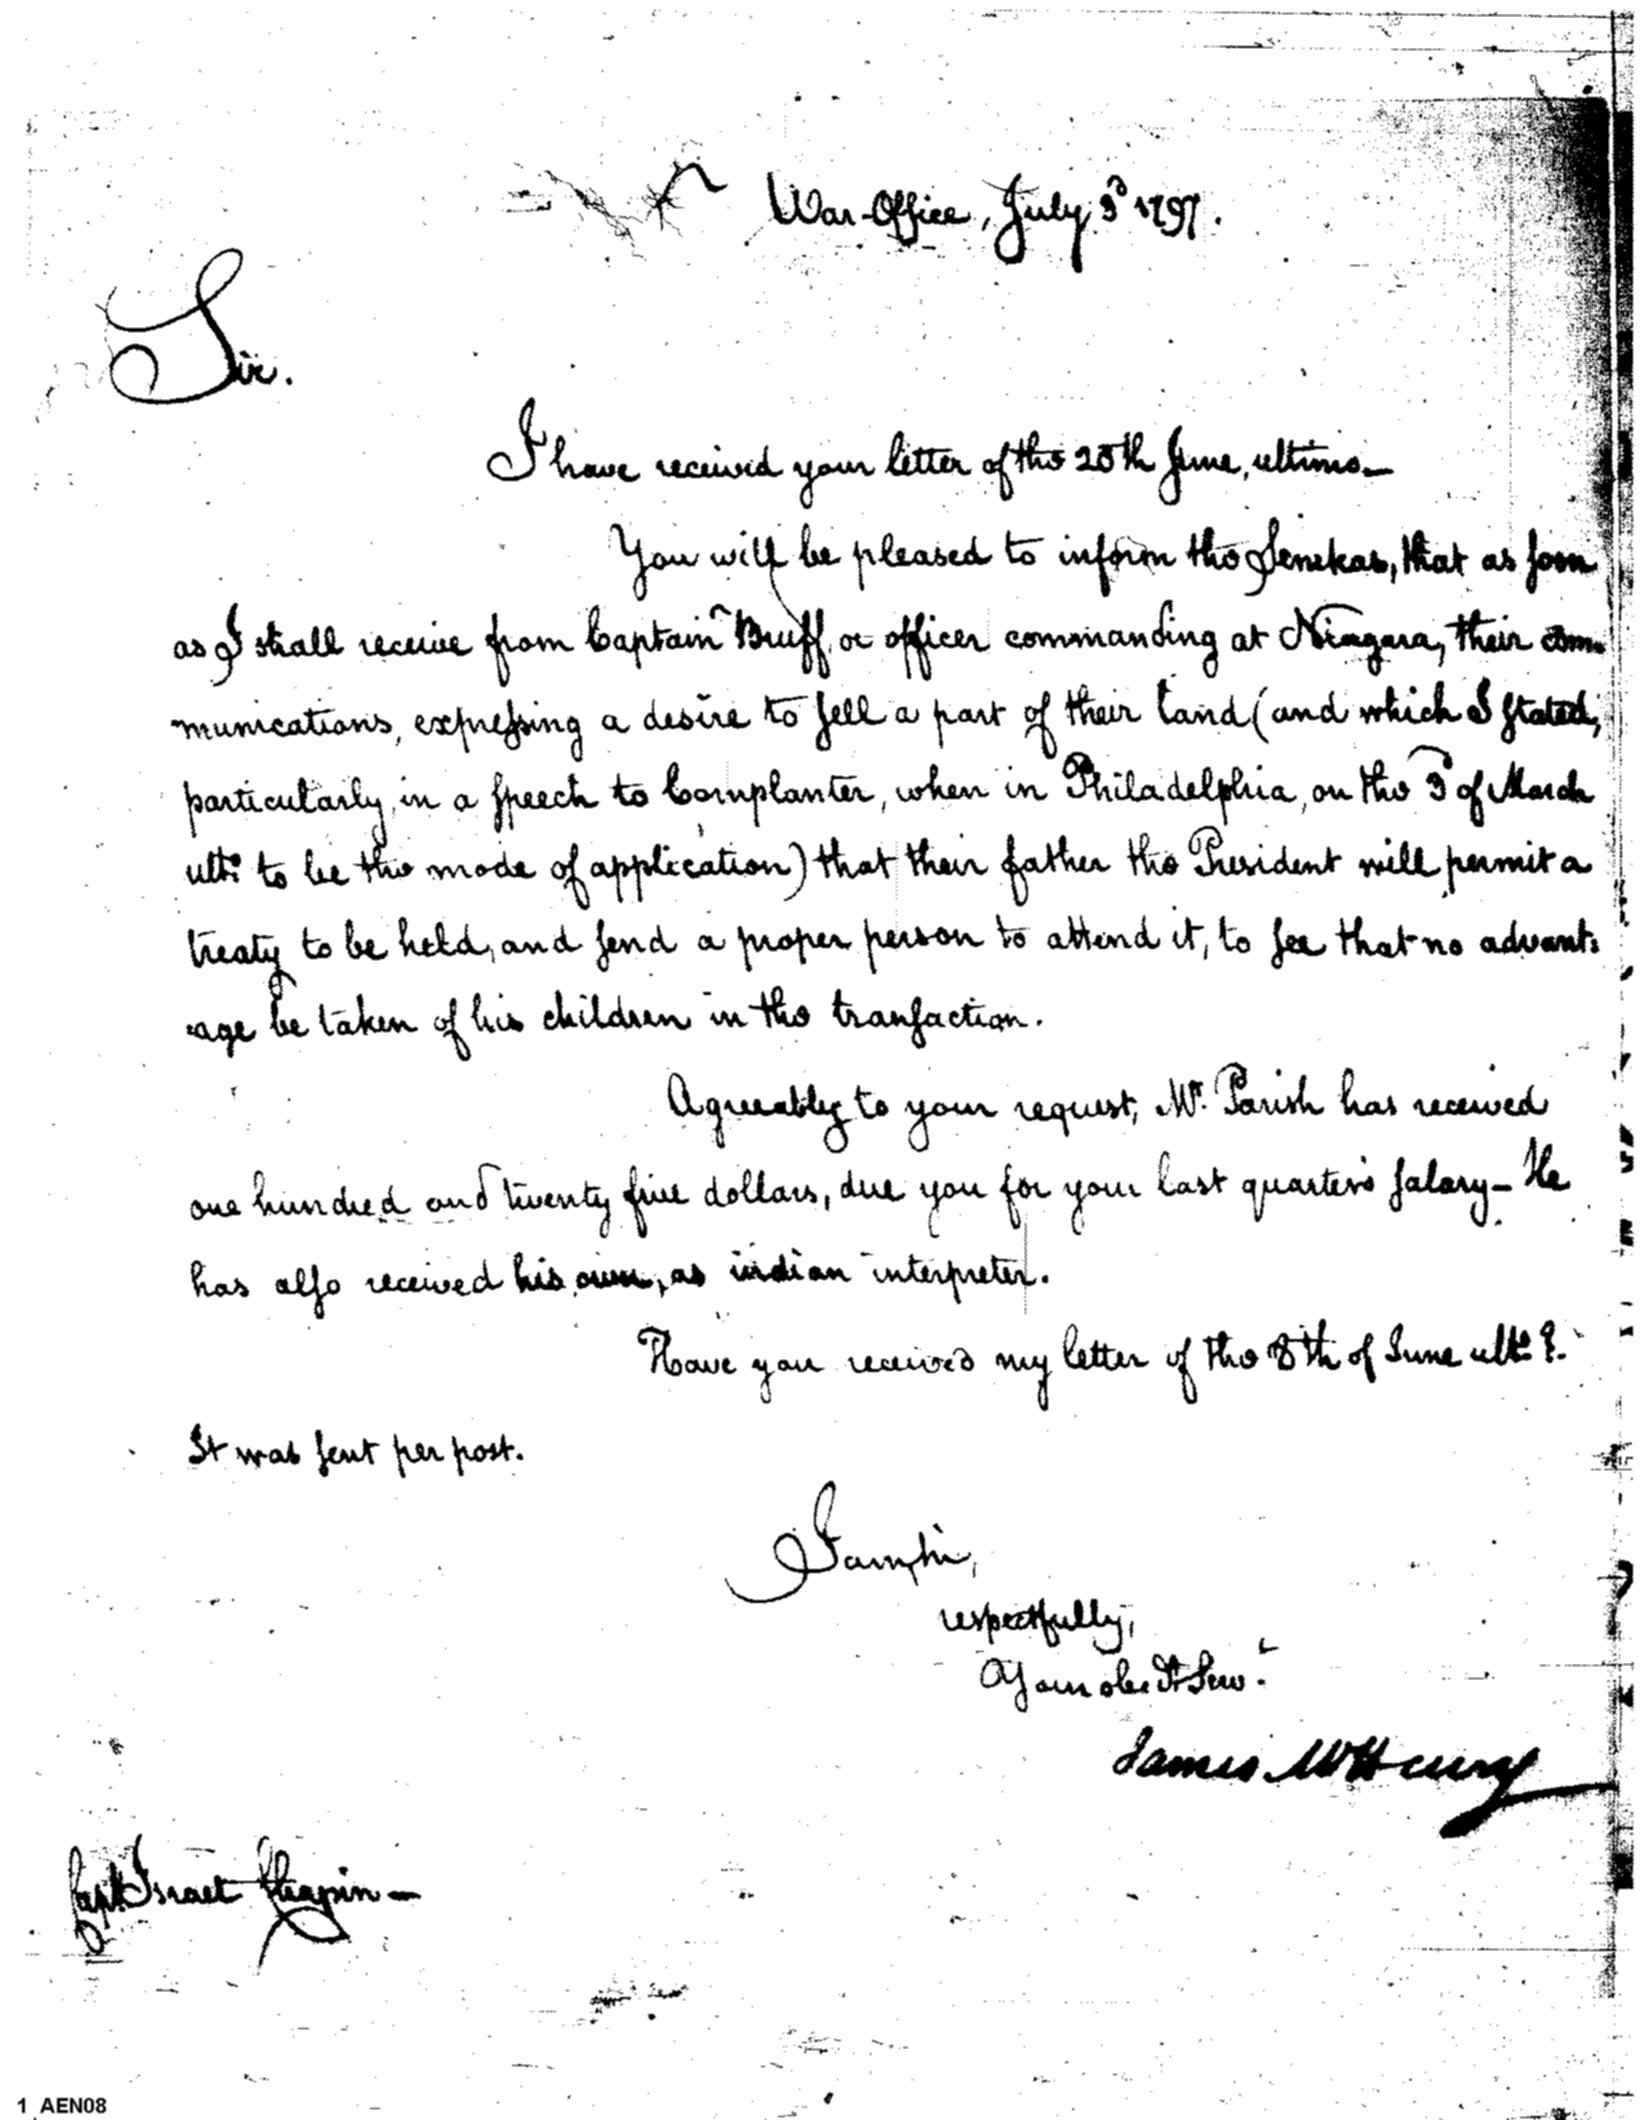 War-Office, July 3d 1797.
Sir.
I have received your letter of the 20th June, ultimo—
You will be pleased to inform the Senekas, that as soon
as I shall receive from Captain Bruff, or officer commanding at Niagara, their com-
munications, expressing a desire to sell a part of their land (and which I stated,
particularly, in a speech to Cornplanter, when in Philadelphia, on the 3d of March
ulto: to be the mode of application) that their father the President will permit a
treaty to be held, and send a proper person to attend it, to see that no advant-
-age be taken of his children in the transaction.
Agreeably to your request, Mr. Parish has received
one hundred and twenty five dollars, due you for your last quarter's salary— He
has also received his own, as indian interpreter.
Have you received my letter of the 8th of June ulto: ?.
It was sent per post.
I am, Sir,
respectfully,
Your obedt Servt
James McHenry
Capt. Israel Chapin—
1 AEN08